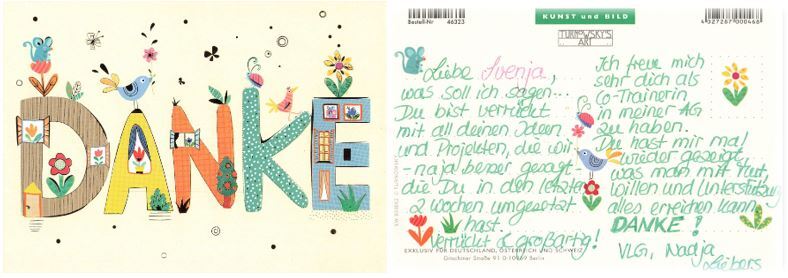 DANKE
Bestell-Nr 46323
KUNST und BILD
4 027267 000466
TURNOWSKY'S
ART
Liebe Svenja,
was soll ich sagen...
Du bist verrückt
mit all deinen Ideen
und Projekten, die wir
- naja besser gesagt -
die Du in den letzten
2 Wochen umgesetzt
hast.
Verrückt & großartig!
Ich freue mich
sehr dich als
Co-Trainerin
in meiner AG
zu haben.
Du hast mir mal
wieder gezeigt,
was man mit Mut,
Willen und Unterstützung
alles erreichen kann.
DANKE!
VLG, Nadja
Leibers
EXKLUSIV FÜR DEUTSCHLAND, ÖSTERREICH UND SCHWEIZ
Gitschiner Straße 91 D-10969 Berlin